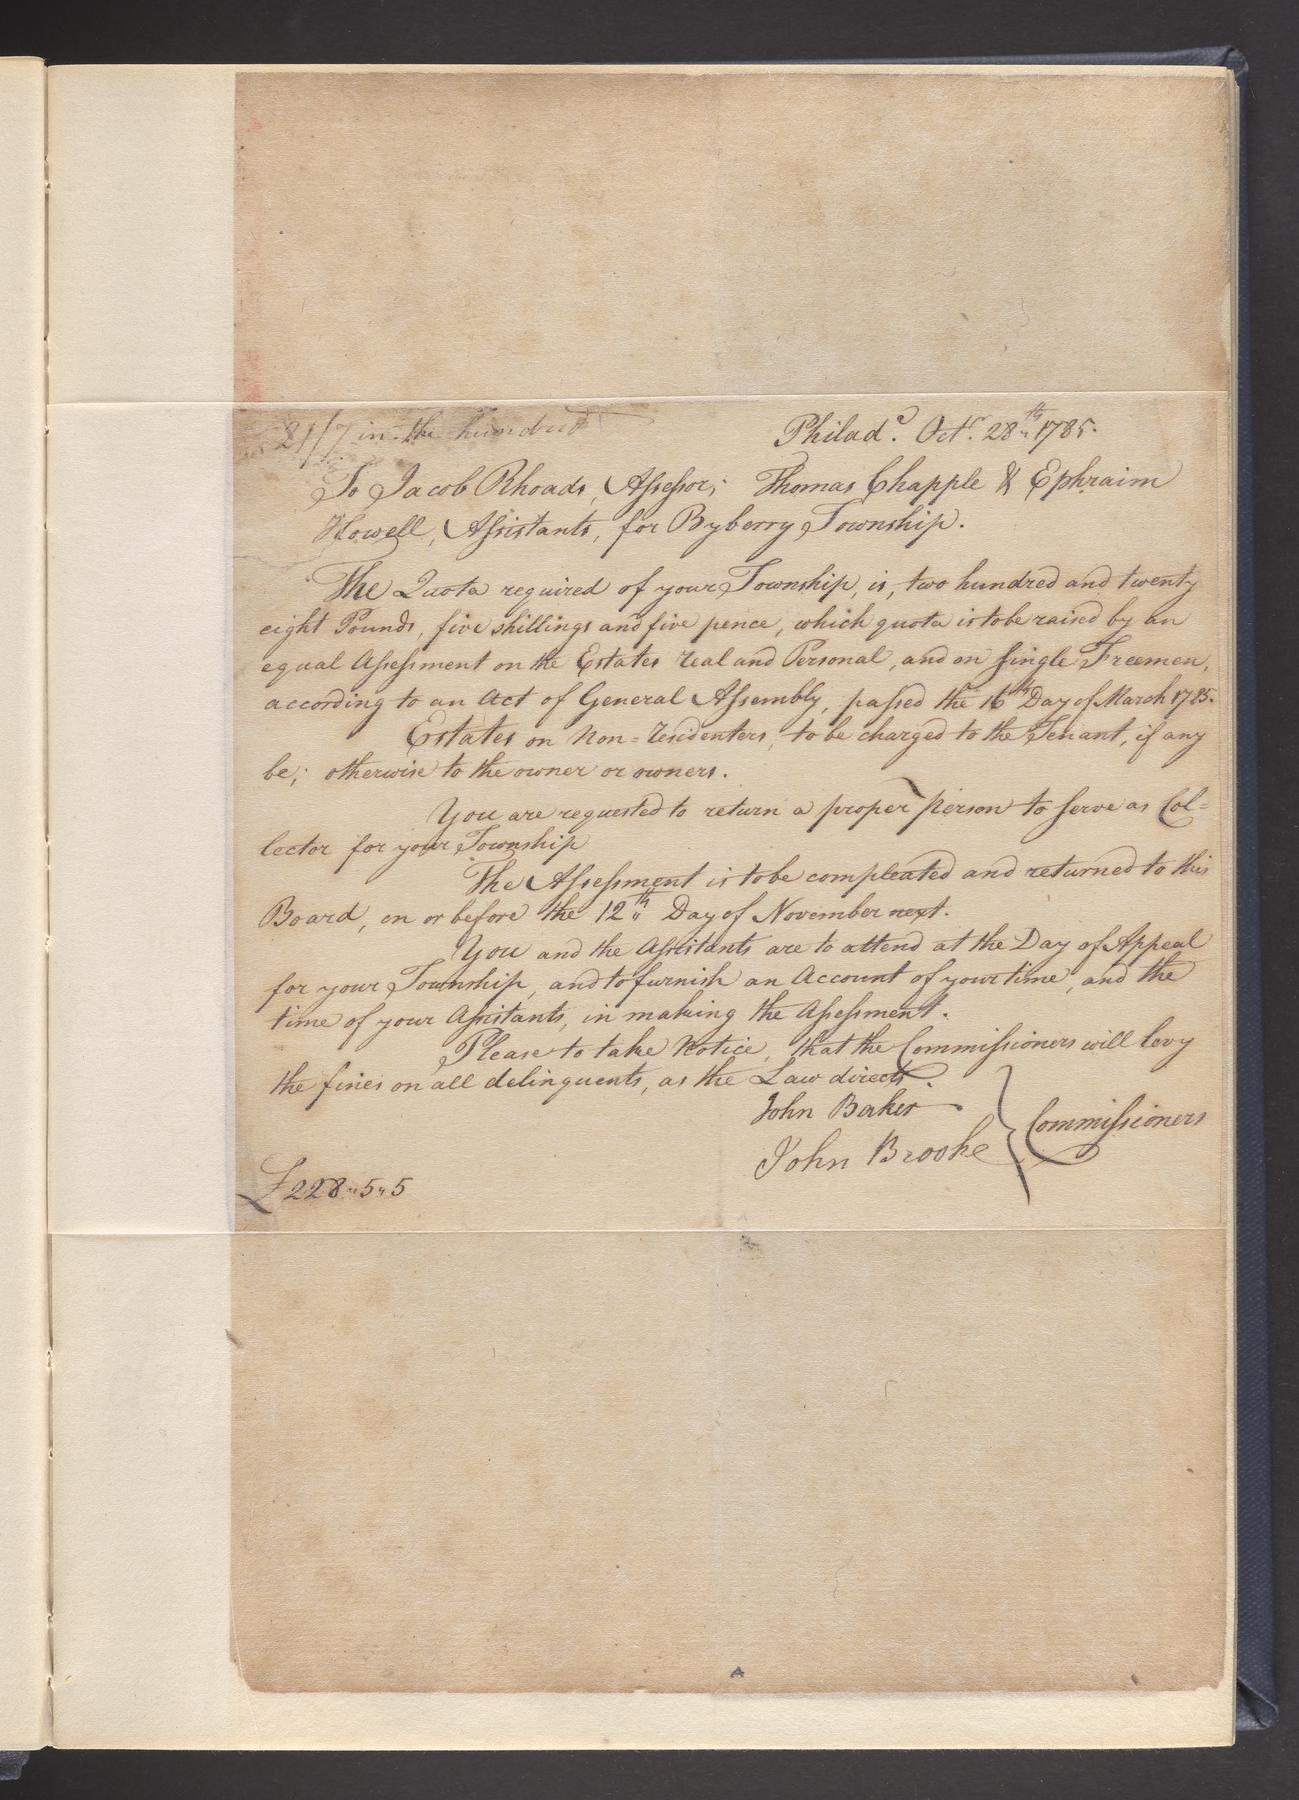 21/7 in the hundred
Philad.a Octr. 28th 1785.
To Jacob Rhoads, Assessor; Thomas Chapple & Ephraim
Howell, Assistants, for Byberry Township.
The Quota required of your Township, is, two hundred and twenty
eight Pounds, five shillings and five pence, which quota is to be raised by an
equal Assessment on the Estates real and Personal, and on single Freemen,
according to an Act of General Assembly, passed the 16th Day of March 1785.
Estates on Non=Residenters, to be charged to the Tenant, if any
be; otherwise to the owner or owners.
You are requested to return a proper Person to serve as Col=
lector for your Township
The Assessment is to be compleated and returned to this
Board, on or before the 12th Day of November next.
You and the Assistants are to attend at the Day of Appeal
for your Township, and to furnish an Account of your time, and the
time of your Assistants, in making the Assessment.
Please to take Notice, that the Commissioners will levy
the fines on all delinquents, as the Law directs.
John Baker
John Brooke } Commissioners
£228"5"5